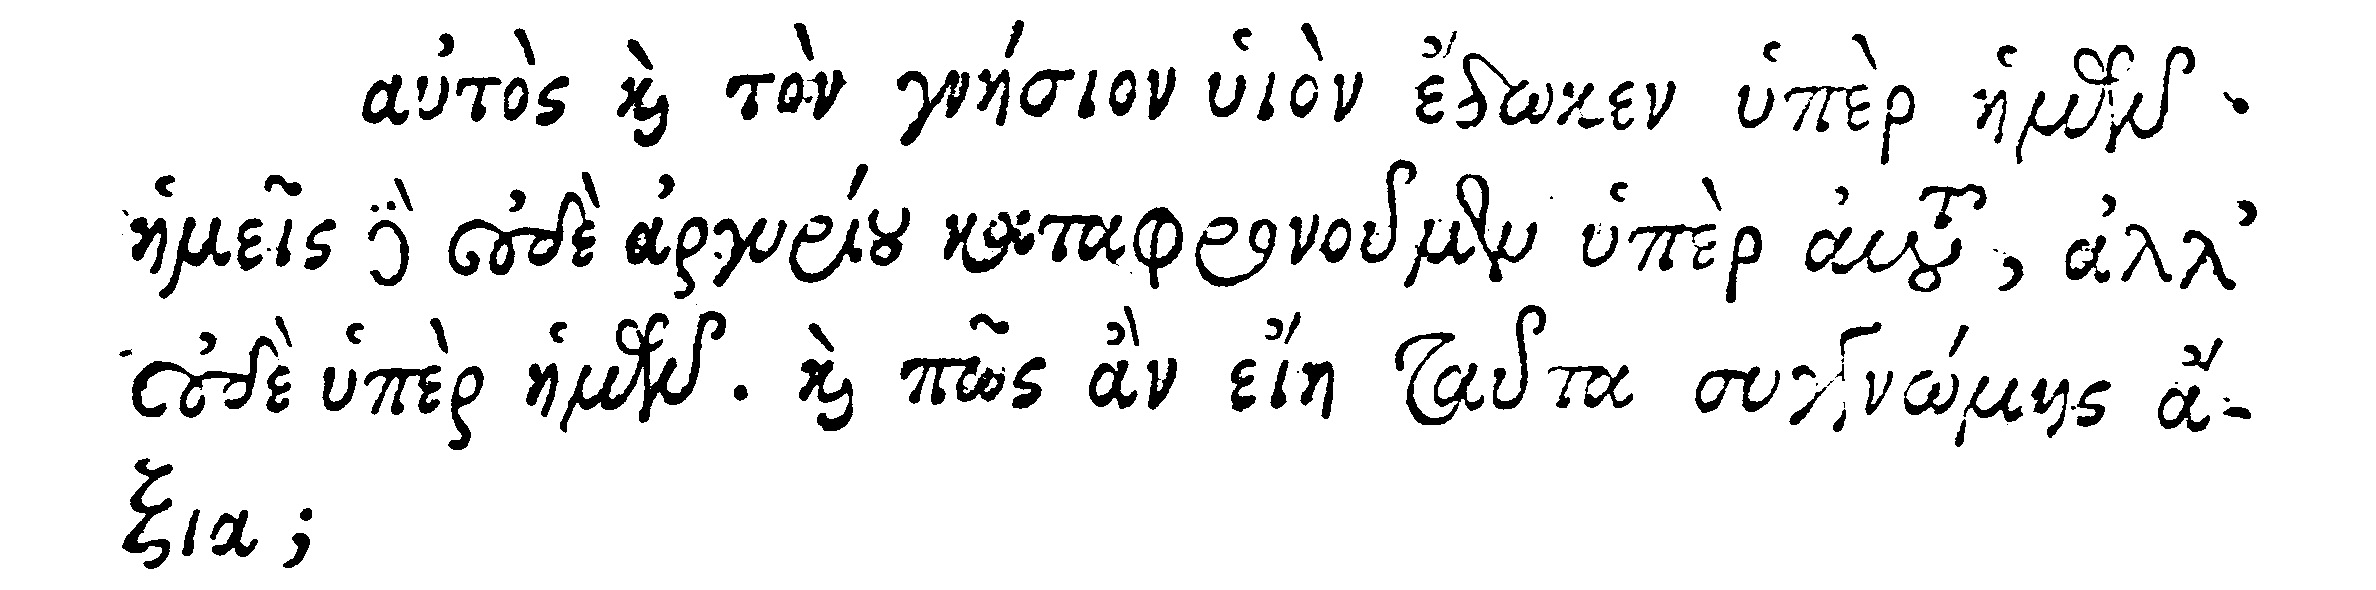 αὐτὸς ϗ̀ τὸν γνήσιον ὑιὸν ἔδωκεν ὑπὲρ ἡμῶν·
ἡμεῖς δὲ οὐδὲ ἀργυρίου καταφρονοῦμεν ὑπὲρ αὐτοῦ, ἀλλ’
οὐδὲ ὑπὲρ ἡμῶν. ϗ̀ πῶς ἂν εἴη ταῦτα συγγνώμης ἄ-
ξια;